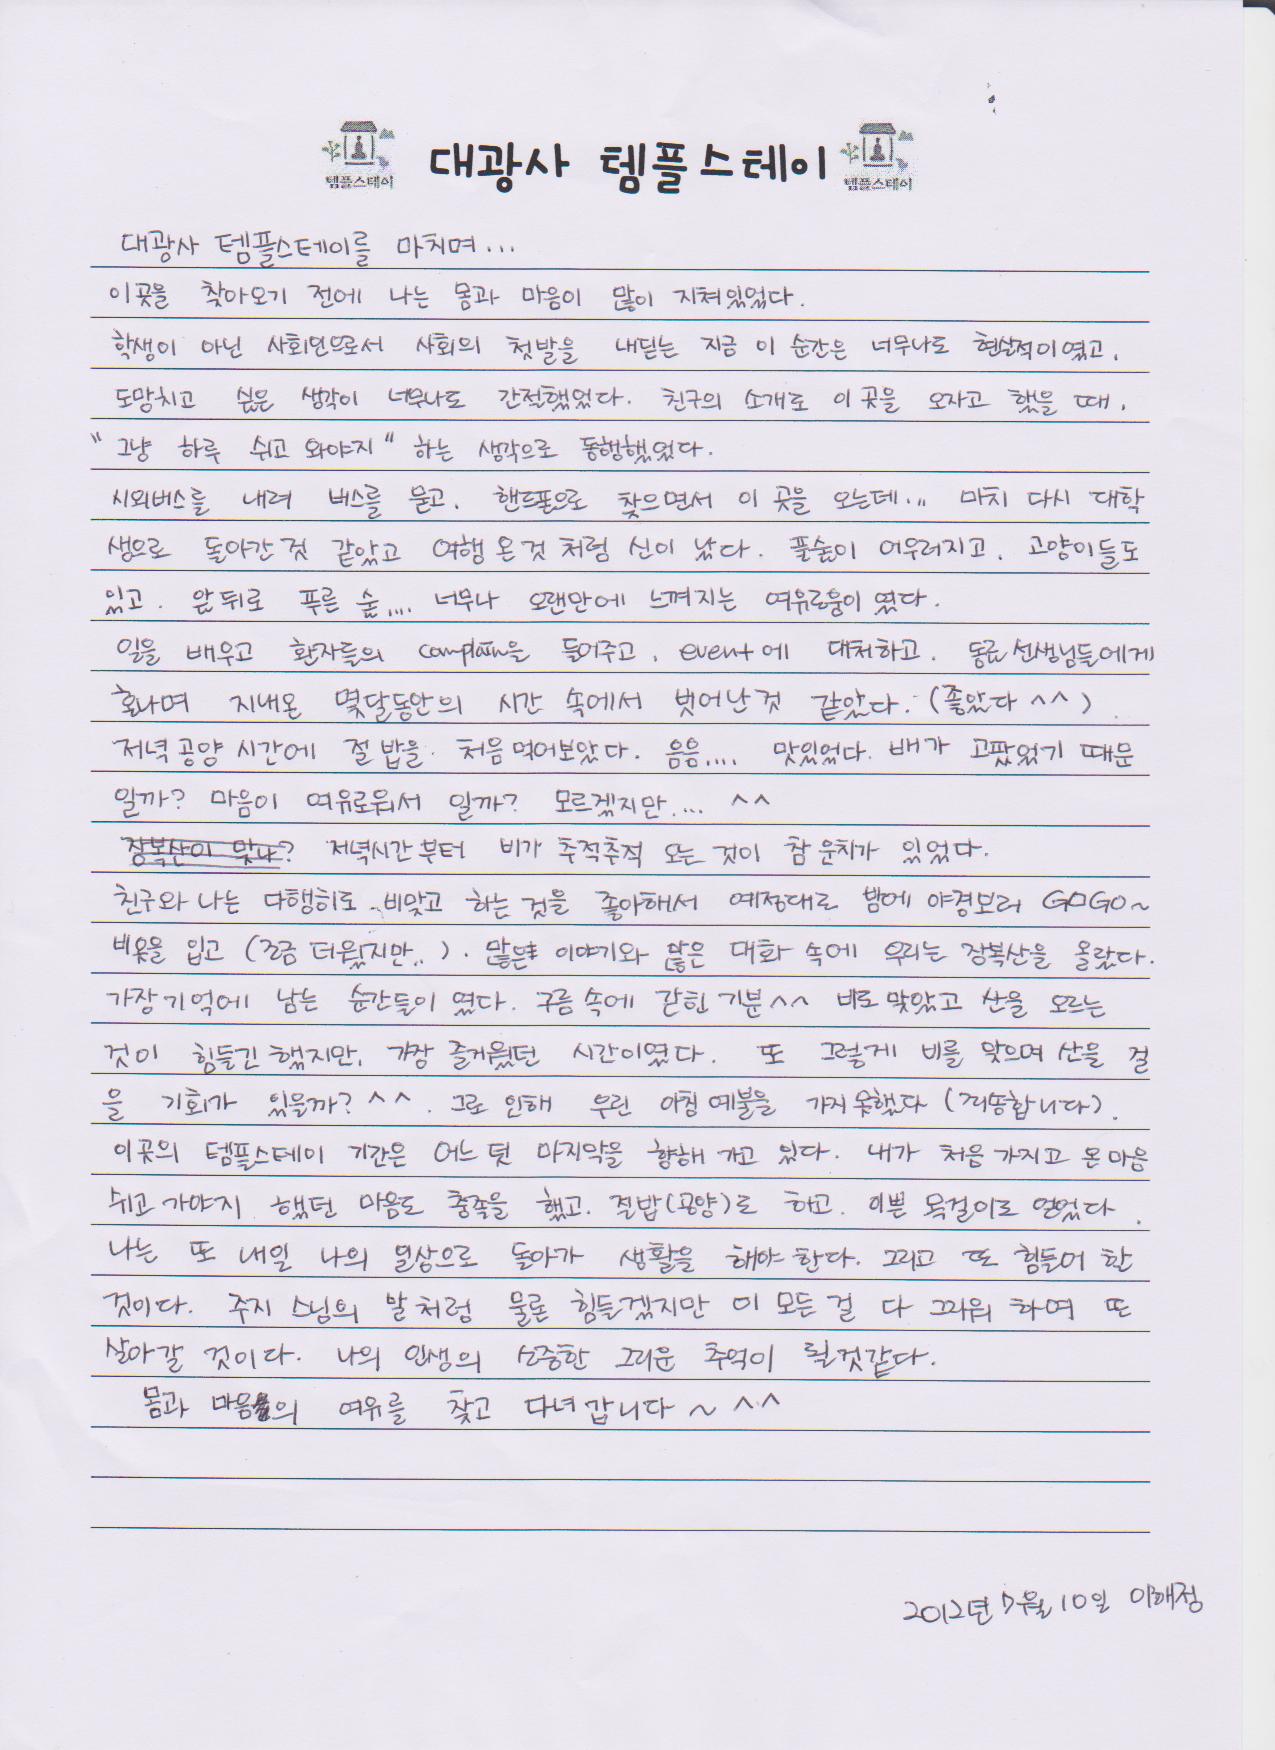 템플스테이 대광사 템플스테이 템플스테이
대광사 템플스테이를 마치며...
이곳을 찾아오기 전에 나는 몸과 마음이 많이 지쳐있었다.
학생이 아닌 사회인으로서 사회의 첫발을 내딛는 지금 이 순간은 너무나도 현실적이였고,
도망치고 싶은 생각이 너무나도 간절했었다. 친구의 소개로 이 곳을 오자고 했을 때,
"그냥 하루 쉬고 와야지" 하는 생각으로 동행했었다.
시외버스를 내려 버스를 묻고, 핸드폰으로 찾으면서 이 곳을 오는데... 마치 다시 대학
생으로 돌아간것 같았고 여행 온것 처럼 신이 났다. 풀숲이 어우러지고, 고양이들도
있고. 앞뒤로 푸른 숲.... 너무나 오랜만에 느껴지는 여유로움이 였다.
일을 배우고 환자들의 complain을 들어주고, event에 대처하고. 동료선생님들에게
혼나며 지내온 몇달동안의 시간 속에서 벗어난것 같았다. (좋았다 ^^)
저녁공양 시간에 절 밥을 처음먹어보았다. 음음.... 맛있었다. 배가 고팠었기 때문
일까? 마음이 여유로워서 일까? 모르겠지만... ^^
장복산이 맞나? 저녁시간부터 비가 추적추적 오는 것이 참 운치가 있었다.
친구와 나는 다행히도 비맞고 하는 것을 좋아해서 예정대로 밤에 야경보러 GOGO~
비옷을 입고 (조금 더웠지만..). 많은 이야기와 많은 대화 속에 우리는 장복산을 올랐다.
가장기억에 남는 순간들이 였다. 구름속에 갇힌 기분^^ 비로 맞았고 산을 오르는
것이 힘들긴 했지만, 가장 즐거웠던 시간이였다. 또 그렇게 비를 맞으며 산을 걸
을 기회가 있을까? ^^. 그로 인해 우린 아침예불을 가지 못했다 (죄송합니다).
이곳의 템플스테이 기간은 어느 덧 마지막을 향해 가고 있다. 내가 처음 가지고 온마음
쉬고 가야지 했던 마음도 충족을 했고. 절밥(공양)도 하고. 이쁜 목걸이도 얻었다.
나는 또 내일 나의 일상으로 돌아가 생활을 해야한다. 그리고 또 힘들어 할
것이다. 주지 스님의 말처럼 물론 힘들겠지만 이 모든 걸 다 그리워 하며 또
살아갈 것이다. 나의 인생의 소중한 그리운 추억이 될것같다.
몸과 마음의 여유를 찾고 다녀갑니다~ ^^
2012년 7월 10일 이해정